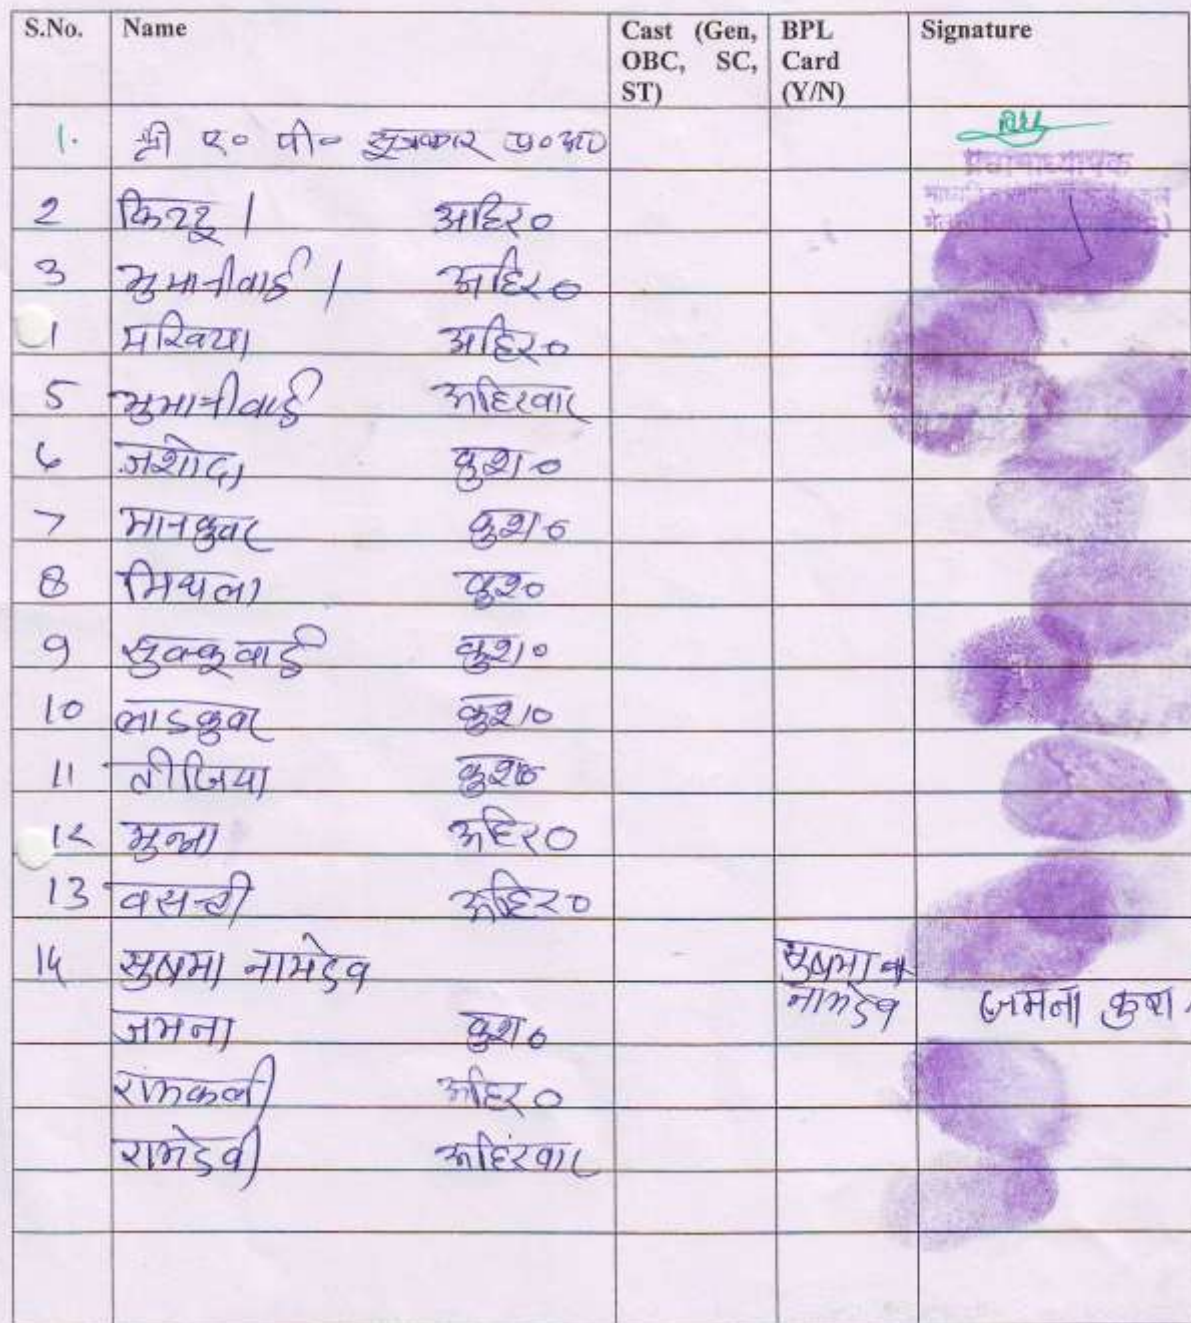 S.No. Name Cast (Gen, OBC, SC, ST) BPL Card (Y/N) Signature
1. श्री ए० पी० सूत्रकार प्र०अ०
प्रधानाध्यापक
2 किटटू / अहिर०
3 भुमानीवाई / अहिर०
1 अहिर०
5 भुमानीवाई अहिरवार
6 जशोदा कुश०
7 मानकुवर कुश०
8 मिथला कुश०
9 सुक्कूवाई कुश०
10 लाडकुवर कुश०
11 तीजिया कुश०
12 मुन्ना अहिर०
13 वसन्ती अहिर०
14 सुषमा नामदेव सुषमा
नामदेव
जमना कुश० जमना कुषा
रामकली अहिर०
रामदेवी अहिरवार